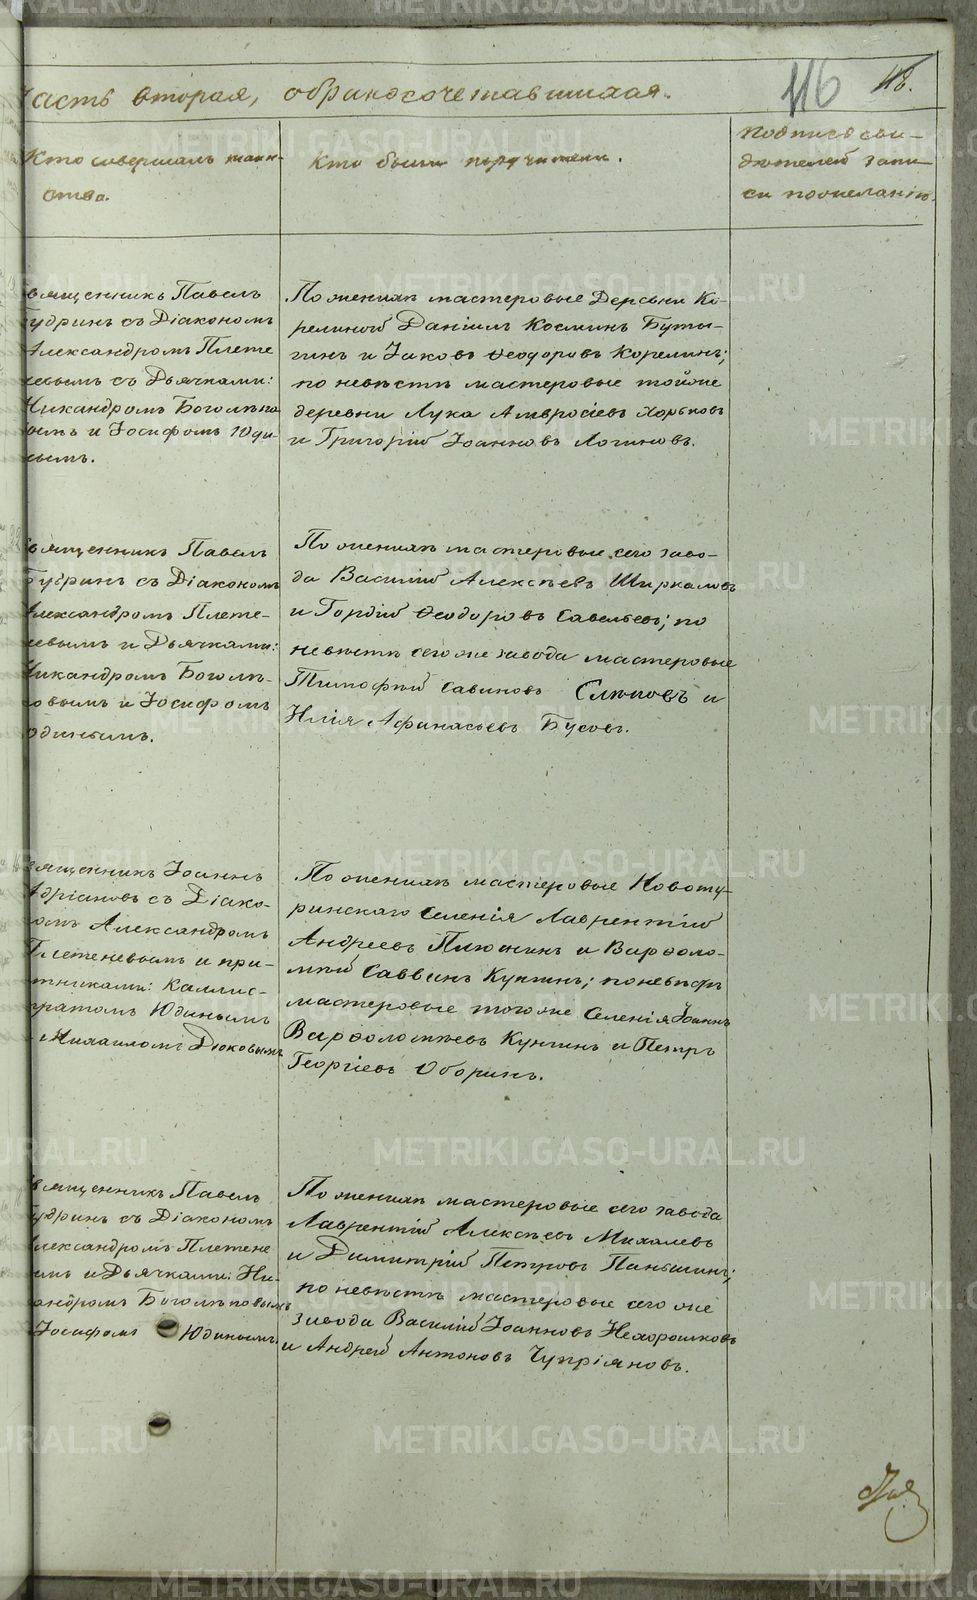 Часть вторая, о бракосочетавшихся.
116
118.
Кто совершалъ таин-
ства.
Кто были поручители.
Подпись сви-
дѣтелей запи-
си по желанію.
вященникъ Павелъ
Гудринъ съ Діакономъ
Александромъ Плете
невымъ съ Дьячками:
Никандромъ Боголѣпо
вымъ и Іосифомъ Юди-
нымъ.
По женихѣ мастеровые Деревни Ко-
релиной Даніилъ Космин Буты-
гинъ и Іаковъ Ѳеодоровъ Корелинъ;
по невѣстѣ мастеровые тойже
деревни Лука Амвросіевъ Хорьковъ
и Григорій Іоанновъ Логиновъ.
вященникъ Павелъ
Гудринъ съ Діакономъ
Александромъ Плете-
невымъ и Дьячками:
Никандромъ Боголѣ-
повымъ и Іосифомъ
Юдинымъ.
По женихѣ мастеровые сего заво-
да Василій Алексѣевъ Ширкаловъ
и Гордій Ѳеодоровъ Савельевъ; по
невѣстѣ сегоже завода мастеровые
Тимофей Савиновъ Слѣповъ и
Илія Афанасьевъ Бусовъ.
вященникъ Іоаннъ
Адріановъ съ Діако-
номъ Александромъ
Плетеневымъ и при-
чтниками: Каллис-
тратомъ Юдинымъ
и Михаиломъ Дюковымъ
По женихѣ мастеровые Новоту-
ринскаго Селенія Лаврентій
Андреевъ Плюснинъ и Варѳоло-
мей Саввинъ Кунгинъ; по невѣстѣ
мастеровые тогоже Селенія Іоаннъ
Варѳоломѣевъ Кунгинъ и Петръ
Георгіевъ Оборинъ.
вященникъ Павелъ
Гудринъ съ Діакономъ
Александромъ Плетене
вымъ и Дьячками: Ни-
кандромъ Боголѣповымъ
Іосифомъ Юдинымъ.
По женихѣ мастеровые сего завода
Лаврентій Алексѣевъ Михалевъ
и Димитрій Петровъ Паньшинъ;
по невѣстѣ мастеровые сегоже
завода Василій Іоанновъ Нехорошковъ
и Андрей Антоновъ Чупріяновъ.
METRIKI.GASO-URAL.RU